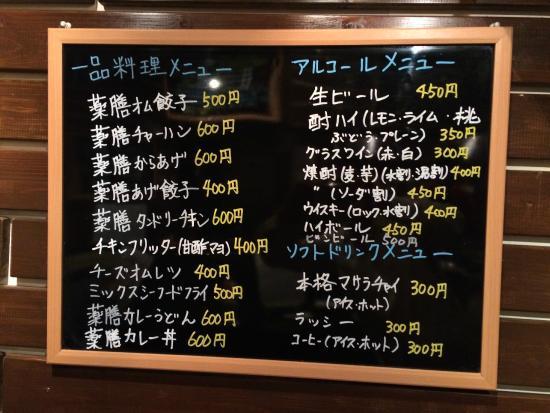 一品料理メニュー
薬膳オム餃子 500円
薬膳チャーハン 600円
薬膳からあげ 600円
薬膳あげ餃子 400円
薬膳タンドリーチキン 600円
チキンフリッター(甘酢マヨ) 400円
チーズオムレツ 400円
ミックスシーフードフライ 500円
薬膳カレーうどん 600円
薬膳カレー丼 600円
アルコールメニュー
生ビール 450円
酎ハイ(レモン・ライム・桃
ぶどう・プレーン) 350円
グラスワイン(赤・白) 300円
焼酎(麦・芋)(水割・湯割) 400円
〃 (ソーダ割) 450円
ウイスキー(ロック・水割) 400円
ハイボール 450円
ビンビール 500円
ソフトドリンクメニュー
本格マサラチャイ 300円
(アイス・ホット)
ラッシー 300円
コーヒー(アイス・ホット) 300円